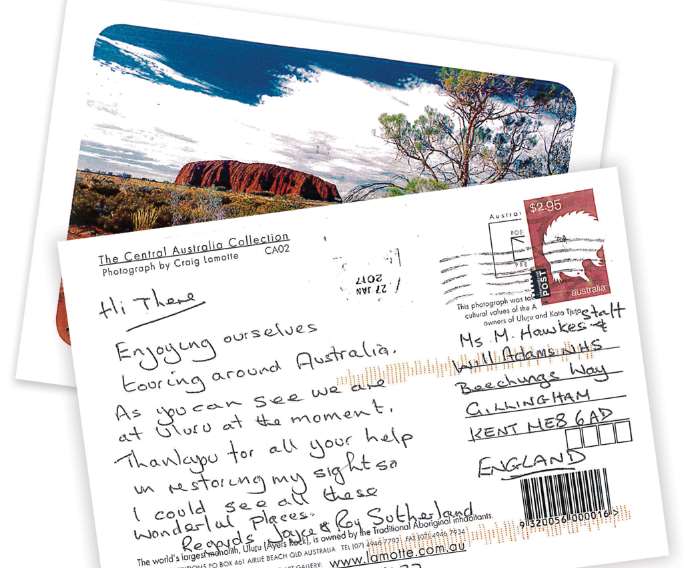 The Central Australia Collection
Photograph by Craig Lamotte CA02
27 JAN
2017
Austral
$2.95
POST
australia
This photograph was
cultural values of the A
owners of Uluru and Kata
Hi There
Enjoying ourselves
touring around Australia.
As you can see we are
at Uluru at the moment.
Thankyou for all your help
in restoring my sight so
I could see all these
wonderful Places.
Regards Joyce & Roy Sutherland
Ms. M. Hawkes & Staff
Will Adams NHS
Beechings Way
GILLINGHAM
KENT ME8 6AD
ENGLAND
9320056000016
The world's largest monolith, Uluru (Ayers Rock), is owned by the Traditional Aboriginal inhabitants.
PO BOX 461 AIRLIE BEACH QLD AUSTRALIA TEL (07) 4946 FAX (07) 4946
GALLERY www.lamotte.com.au